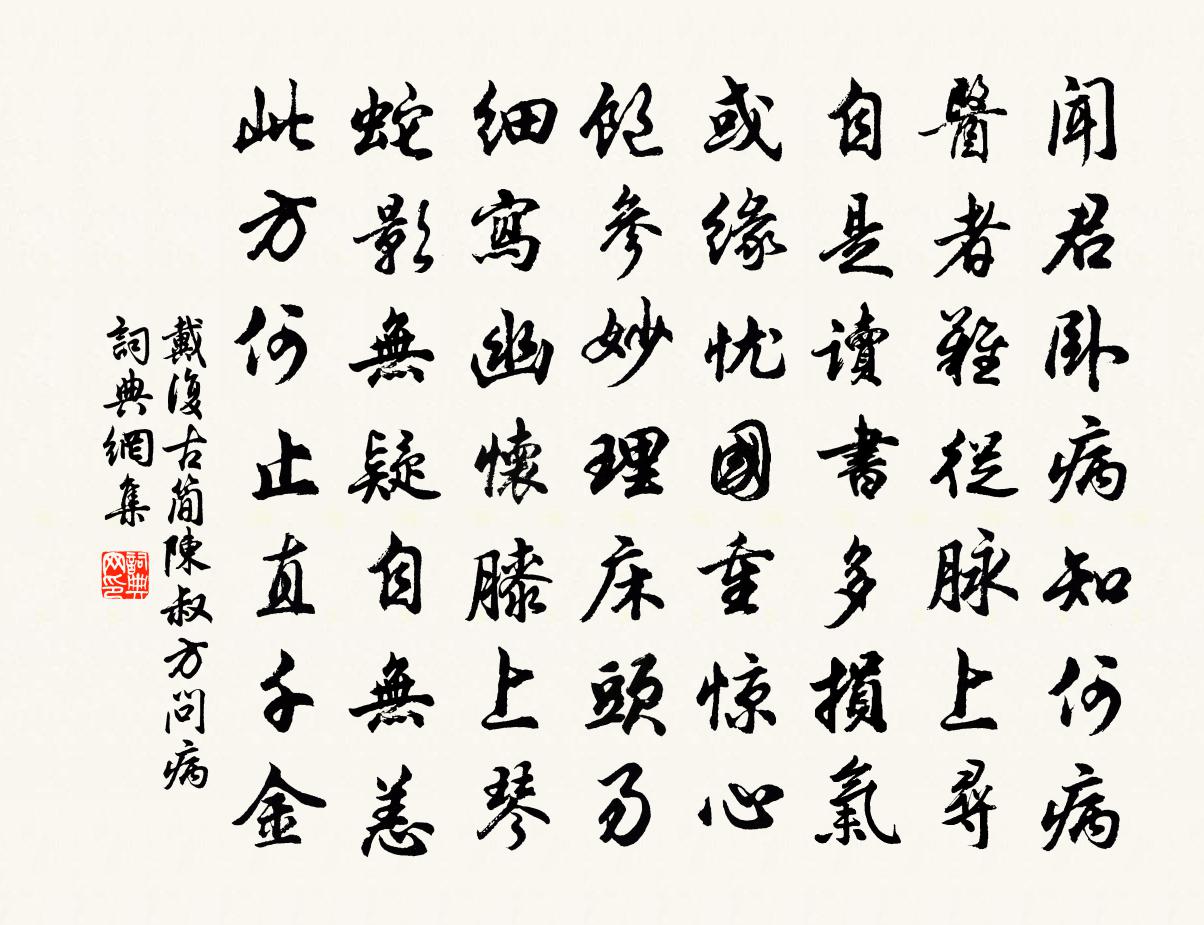 聞君卧病知何病
醫者難從脉上尋
自是讀書多損氣
或緣忧國重惊心
飽參妙理床頭易
細寫幽懷膝上琴
蛇影無疑自無恙
此方何止直千金
戴復古簡陳叔方問病
詞典網集
詞典
网印